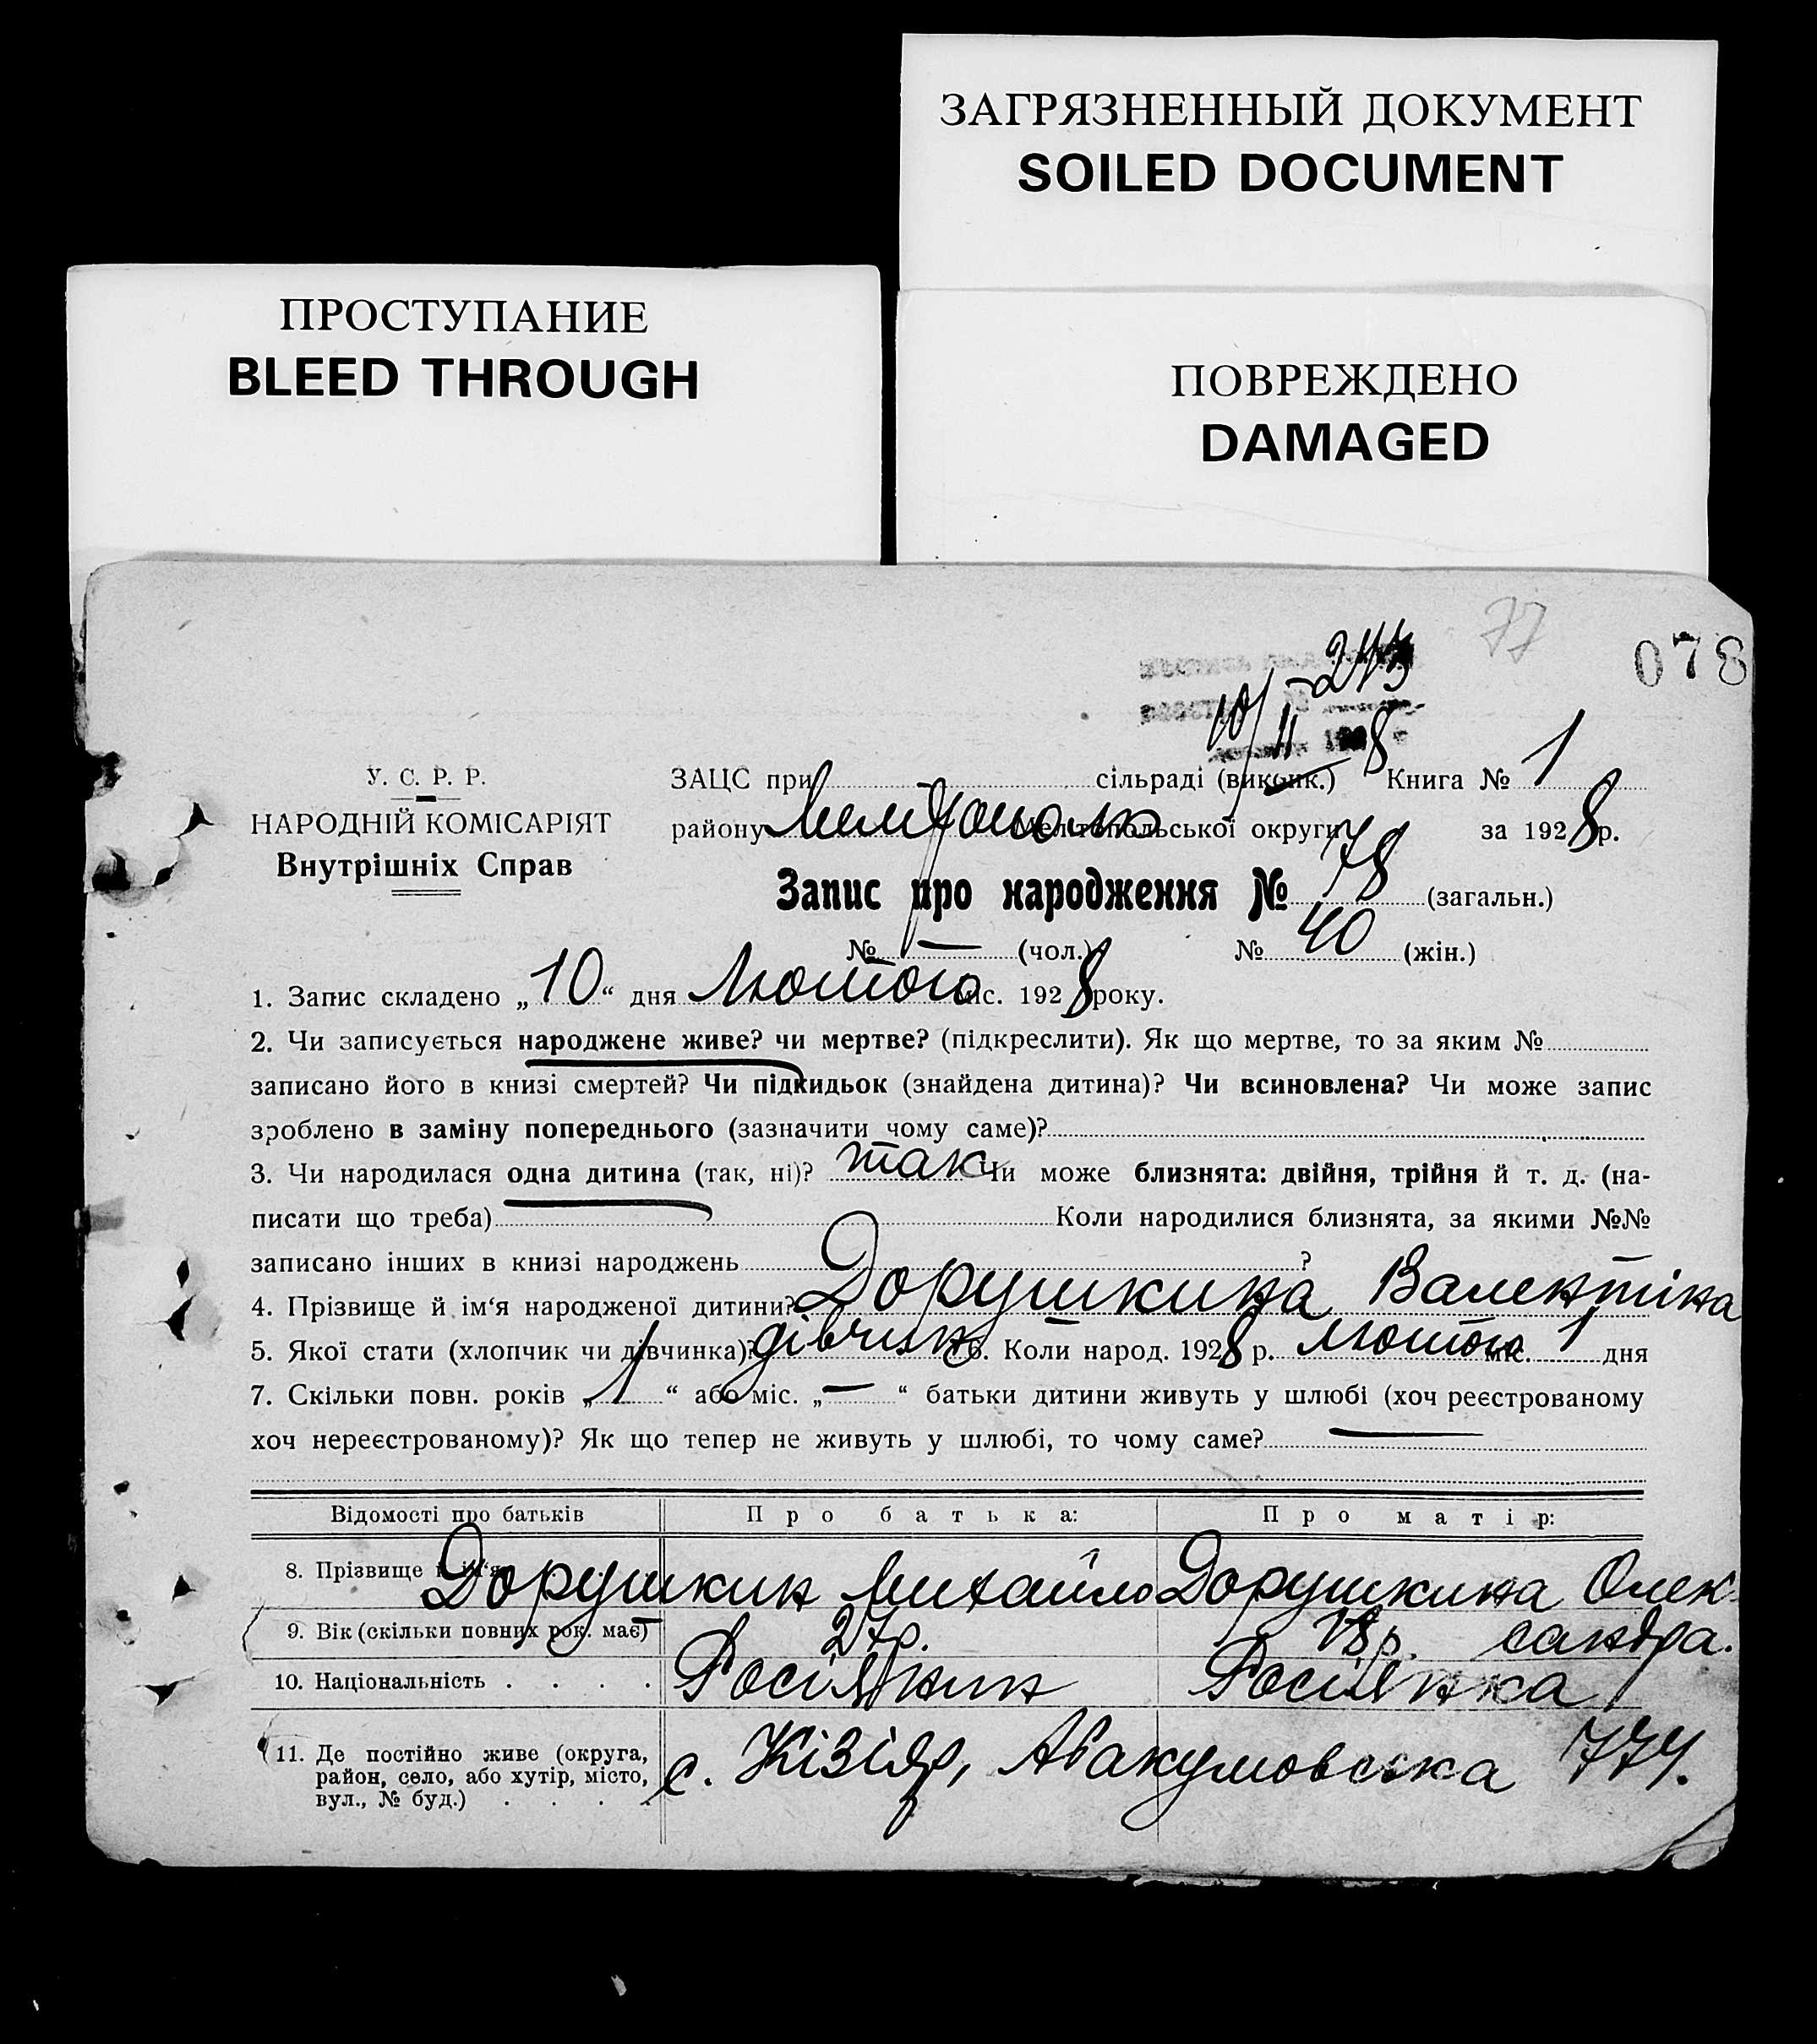 ЗАГРЯЗНЕННЫЙ ДОКУМЕНТ
SOILED DOCUMENT
ПРОСТУПАНИЕ
BLEED THROUGH
ПОВРЕЖДЕНО
DAMAGED
77
078
10/II 8
У. С. Р. Р.
НАРОДНІЙ КОМІСАРІЯТ
Внутрішніх Справ
ЗАЦС при сільраді (виконк.) Книга № 1
району Мелітополь Мелітопольської округи за 1928 р.
Запис про народження № 78 (загальн.)
№ — (чол.) № 40 (жін.)
1. Запис складено „10“ дня Лютого міс. 1928 року.
2. Чи записується народжене живе? чи мертве? (підкреслити). Як що мертве, то за яким №
записано його в книзі смертей? Чи підкидьок (знайдена дитина)? Чи всиновлена? Чи може запис
зроблено в заміну попереднього (зазначити чому саме)?
3. Чи народилася одна дитина (так, ні)? так Чи може близнята: двійня, трійня й т. д. (на-
писати що треба) Коли народилися близнята, за якими №№
записано інших в книзі народжень ?
4. Прізвище й ім‘я народженої дитини? Дорушкина Валентіна
5. Якої стати (хлопчик чи дівчинка)? дівчинка 6. Коли народ. 1928 р. Лютого міс. 1 дня
7. Скільки повн. років „1“ або міс. „—“ батьки дитини живуть у шлюбі (хоч реєстрованому
хоч нереєстрованому)? Як що тепер не живуть у шлюбі, то чому саме? —
Відомості про батьків Про батька: Про матір:
8. Прізвище й ім‘я Дорушкин Михайло Дорушкина Олек-
сандра.
9. Вік (скільки повних рок. має) 27р. 18р.
10. Національність . . . . Росіянин Росіянка
11. Де постійно живе (округа,
район, село, або хутір, місто,
вул., № буд.) . . . .
с. Кізіяр, Авакумовська 774.